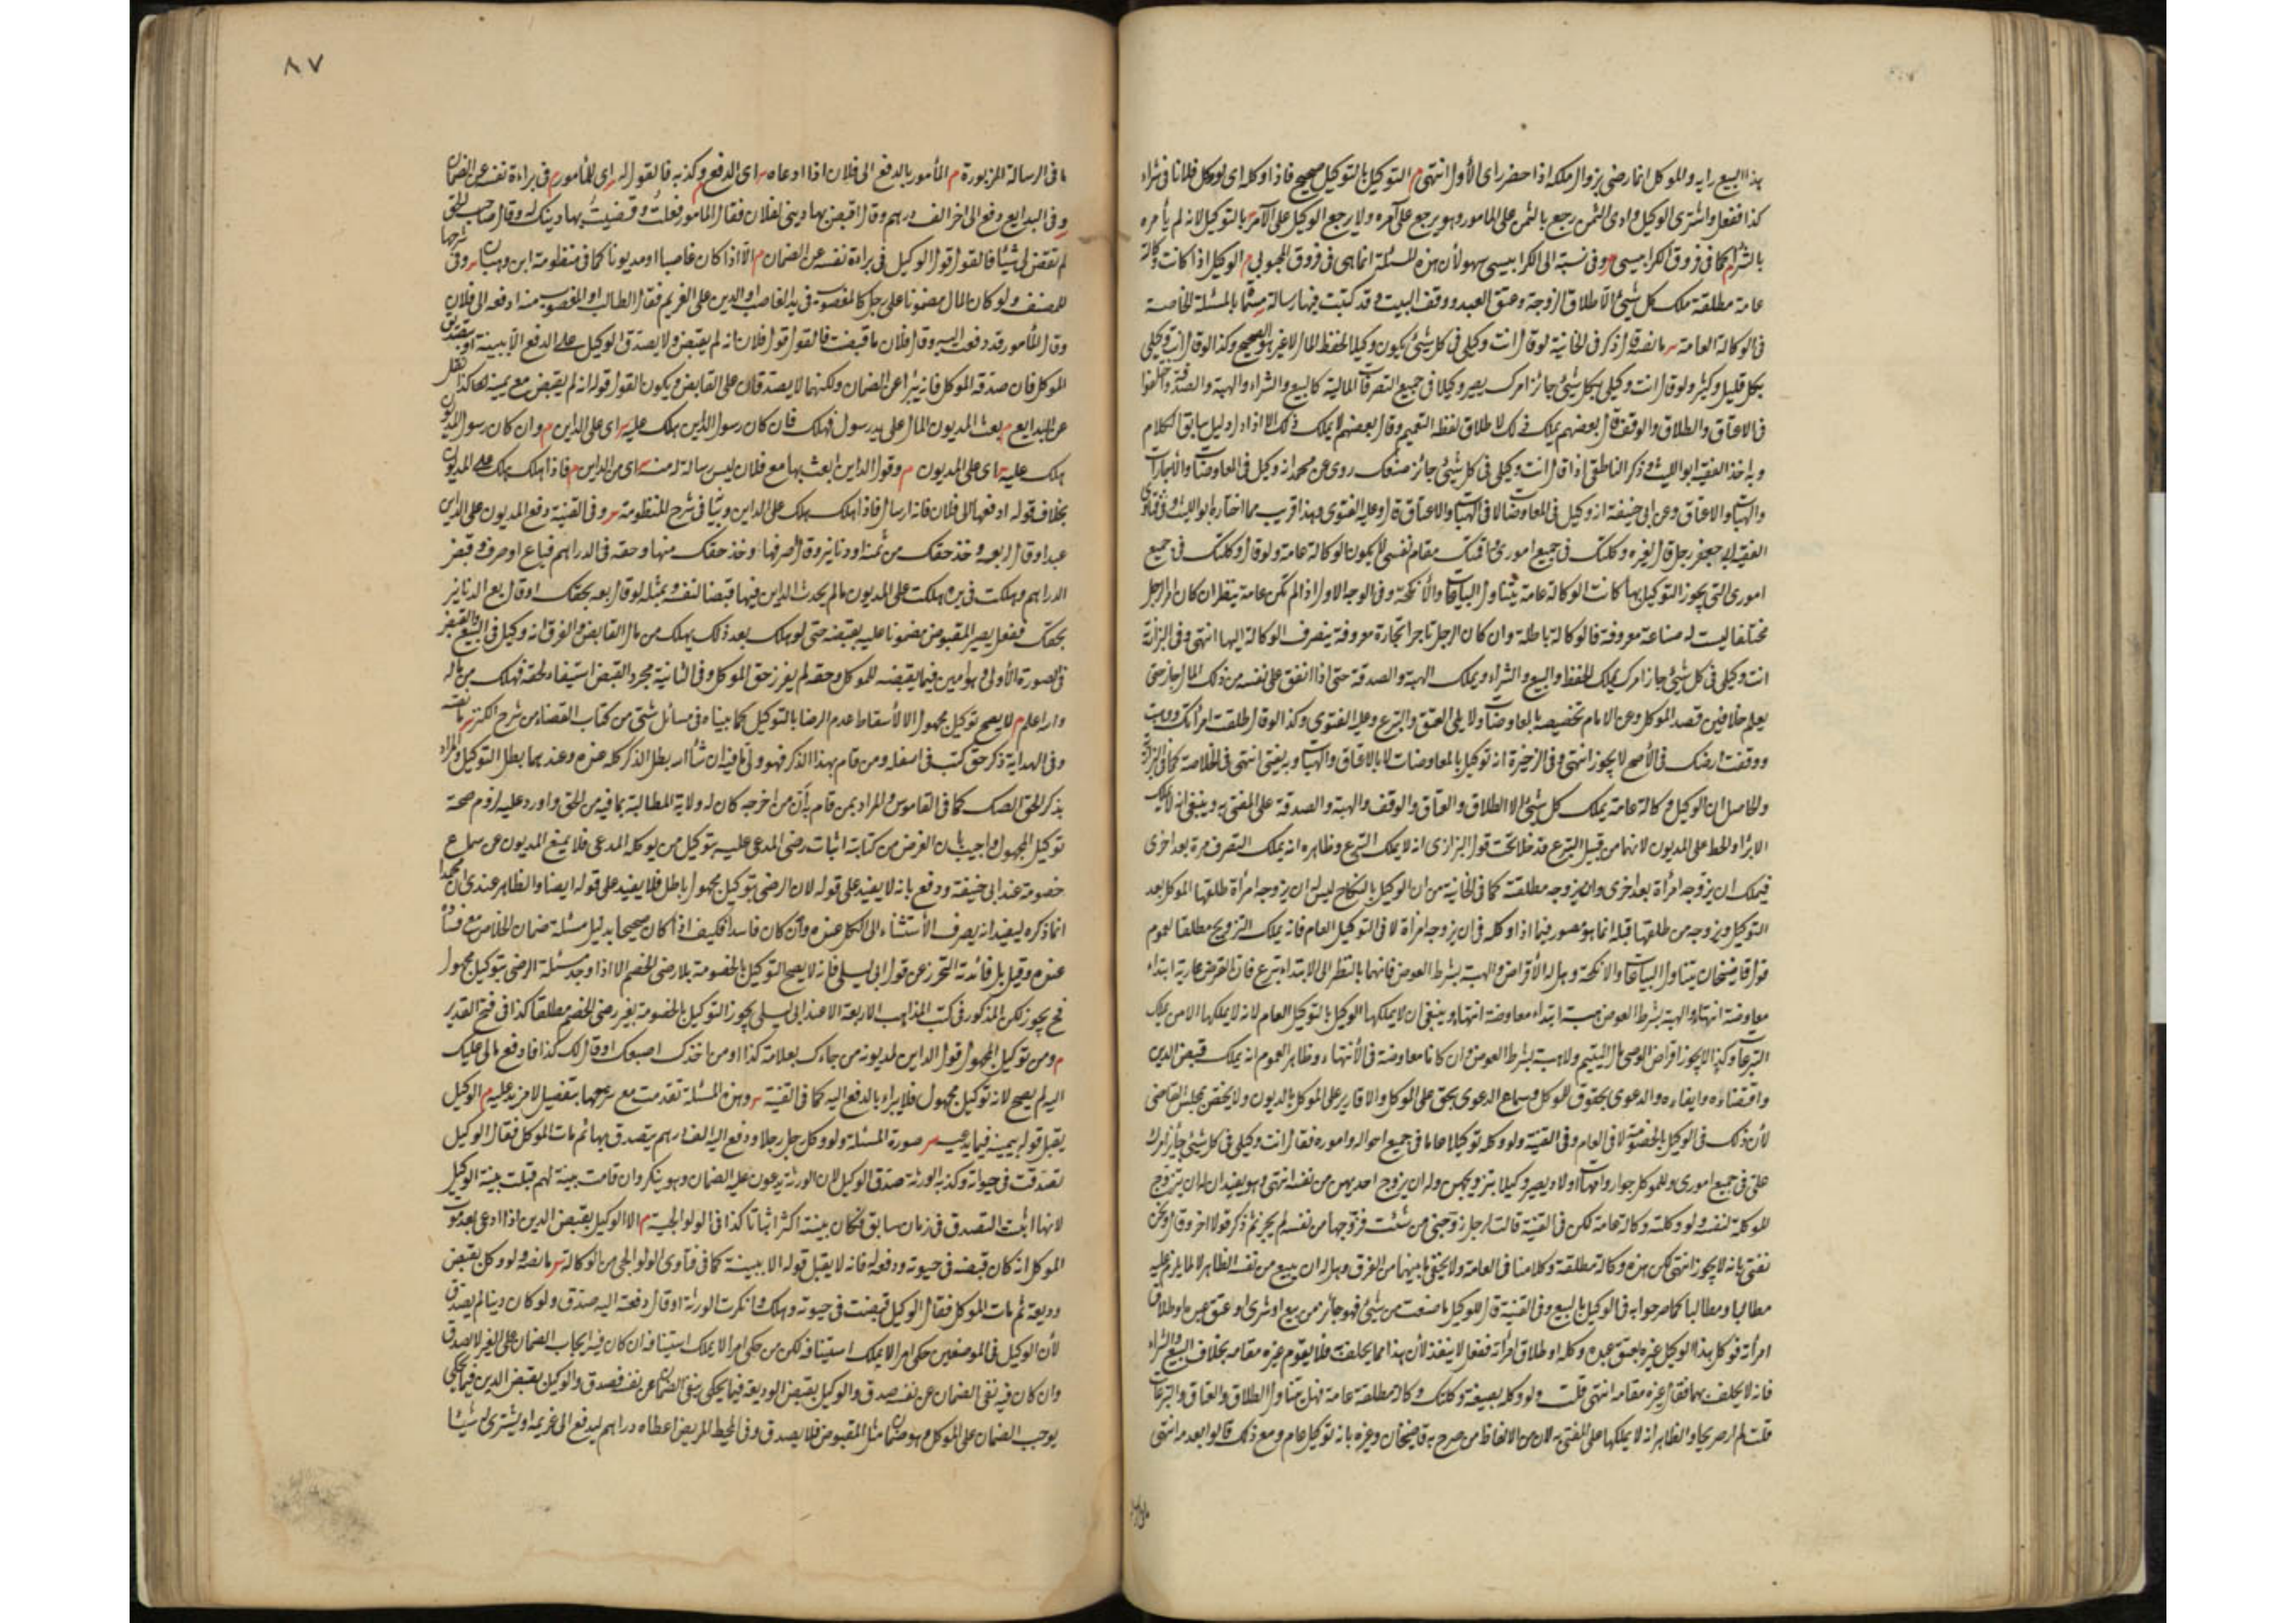 هذا البيع رايه والموكل انما رضى بزوال ملكه اذا حضر راى الأول انتهى م التوكيل بالتوكيل صحيح فاذا وكله اى لو وكل فلانا فى شراء
كذا ففعل واشترى الوكيل وادى الثمن رجع بالثمن على المامور وهو يرجع على آمره ولا يرجع الوكيل على الآمر بالتوكيل لانه لم يأمره
بالشراء كما فى فروق الكرابيسى وفى نسبته الى الكرابيسى سهو لأن هذه المسئلة انما هى فى فروق المحبوبى م الوكيل اذا كانت وكالته
عامة مطلقة ملك كل شئ الا طلاق الزوجة وعتق العبد ووقف البيت وقد كتبت فيها رسالة بالمسئلة الخاصة
فى الوكالة العامة ما نصه قال ذكر فى الخانية لو قال انت وكيلى فى كل شئ يكون وكيلا لحفظ المال لا غير هو الصحيح وكذا لو قال انت وكيلى
بكل قليل وكثير ولو قال انت وكيلى بكل شئ جائز امرك يصير وكيلا فى جميع التصرفات المالية كالبيع والشراء والهبة والصدقة واختلفوا
فى الاعتاق والطلاق والوقف قال بعضهم يملك ذلك لاطلاق لفظ التعميم وقال بعضهم لا يملك ذلك الا اذا دل دليل سابق الكلام
وبه اخذ الفقيه ابو الليث وذكر الناطفى اذا قال انت وكيلى فى كل شئ جائز صنعك روى عن محمد انه وكيل فى المعاوضات والاجارات
والهبات والاعتاق وعن ابى حنيفة انه وكيل فى المعاوضات لا فى الهبات والاعتاق قال وعليه الفتوى وهذا قريب مما اختاره ابو الليث وفى فتاوى
الفقيه ابى جعفر رجل قال لغيره وكلتك فى جميع امورى واقمتك مقام نفسى لا يكون الوكالة عامة ولو قال وكلتك فى جميع
امورى التى يجوز التوكيل بها كانت الوكالة عامة يتناول البياعات والأنكحة وفى الوجه الاول اذا لم تكن عامة ينظر ان كان امر الرجل
مختلفا ليست له صناعة معروفة فالوكالة باطلة وان كان الرجل تاجرا تجارة معروفة ينصرف الوكالة اليها انتهى وفى البزازية
انت وكيلى فى كل شئ جاز امرك يملك الحفظ والبيع والشراء ويملك الهبة والصدقة حتى اذا انفق على نفسه من ذلك المال جاز حتى
يعلم خلافه من قصد الموكل وعن الامام تخصيصه بالمعاوضات ولا يلى العتق والتبرع وعليه الفتوى وكذا لو قال طلقت امرأتك ووهبت
ووقفت ارضك فى الأصح لا يجوز انتهى وفى الذخيرة انه توكيل بالمعاوضات لا بالاعتاق والهبات وبه يفتى انتهى وفى الخلاصة كما فى البزازية
والحاصل ان الوكيل وكالة عامة يملك كل شئ الا الطلاق والعتاق والوقف والهبة والصدقة على المفتى به وينبغى انه لا يملك
الابراء والحط على المديون لانهما من قبيل التبرع فدخلا تحت قول البزازى انه لا يملك التبرع وظاهره انه يملك التصرف مرة بعد اخرى
فيملك ان يزوجه امرأة بعد اخرى وان يزوجه مطلقته كما فى الخانية من ان الوكيل بالنكاح ليس له ان يزوجه امرأة طلقها الموكل بعد
التوكيل ويزوجه من طلقها قبله انما هو مصور فيما اذا وكله فى ان يزوجه امرأة لا فى التوكيل العام فانه يملك التزويج مطلقا لعموم
قول قاضيخان يتناول البياعات والانكحة وهل له الأقراض والهبة بشرط العوض فانهما بالنظر الى الابتداء تبرع فان القرض عارية ابتداء
معاوضة انتهاء والهبة بشرط العوض هبة ابتداء معاوضة انتهاء وينبغى ان لا يملكهما الوكيل بالتوكيل العام لانه لا يملكهما الا من يملك
التبرعات وكذا لا يجوز اقراض الوصى مال اليتيم ولا هبته بشرط العوض وان كانا معاوضة فى الأنتهاء وظاهر العموم انه يملك قبض الدين
واقتضاءه وايفاءه والدعوى بحقوق للموكل وسماع الدعوى بحق على الموكل والاقارير على الموكل بالديون ولا يختص بمجلس القاضى
لأن ذلك فى الوكيل بالخصومة لا فى العام وفى القنية ولو وكله توكيلا عاما فى جميع احواله واموره فقال انت وكيلى فى كل شئ جائز امرك
على فى جميع امورى وللموكل جوار وامهات اولاد يصير وكيلا بتزويجهن وله ان يزوج احديهن من نفسه انتهى وهو يفيد ان له ان يتزوج
الموكلة لنفسه ولو وكلته وكالة عامة لكن فى القنية قالت لرجل زوجنى من شئت فزوجها من نفسه لم يجز ثم ذكر قولا اخر وقال ولكن
نفتى بانه لا يجوز انتهى لكن هذه وكالة مطلقة وكلامنا فى العامة ولا يخفى ما بينهما من الفرق وهل له ان يبيع من نفسه الظاهر لا لما يلزم عليه
مطالبا ومطالبا كما صرحوا به فى الوكيل بالبيع وفى القنية قال للوكيل ما صنعت من شئ فهو جائز من بيع او شرى او عتق عبده او طلاق
امرأته فوكل هذا الوكيل غيره بعتق عبده وكله او طلاق امرأته ففعل لا ينفذ لأن هذا مما يحلف به فلا يقوم غيره مقامه بخلاف البيع والشراء
فانه لا يحلف بهما فقام غيره مقامه انتهى قلت ولو وكله بصيغة وكلتك وكالة مطلقة عامة فهل يتناول الطلاق والعتاق والتبرعات
قلت لم اره صريحا والظاهر انه لا يملكها على المفتى به لان من الالفاظ من صرح به قاضيخان وغيره بانه توكيل عام ومع ذلك قالوا بعدمه انتهى
٨٧
ما فى الرسالة المزبورة م المأمور بالدفع الى فلان اذا ادعاه اى الدفع وكذبه فالقول له اى للمأمور م فى براءة نفسه عن الضمان
وفى البدايع دفع الى اخر الف درهم وقال اقبض بها دينى لفلان فقال المامور فعلت وقضيت بها دينك له وقال صاحب الحق
لم تقض لى شيئا فالقول قول الوكيل فى براءة نفسه عن الضمان م الا اذا كان غاصبا او مديونا كما فى منظومة ابن وهبان وفى شرحها
للمصنف ولو كان المال مضمونا على رجل كالمغصوب فى يد الغاصب او الدين على الغريم فقال الطالب او المغصوب منه ادفعه الى فلان
وقال المأمور قد دفعت اليه وقال فلان ما قبضت فالقول قول فلان انه لم يقبض ولا يصدق الوكيل على الدفع الا ببينة او بتصديق
الموكل فان صدقه الموكل فانه يبرأ عن الضمان ولكنهما لا يصدقان على القابض ويكون القول قوله انه لم يقبض مع يمينه هكذا نقل
عن البدايع م بعث المديون المال على يد رسول فهلك فان كان رسول الداين هلك عليه اى على الداين م وان كان رسول المديون
هلك عليه اى على المديون م وقول الداين ابعث بها مع فلان ليس رسالة له منه اى من الداين م فاذا هلك هلك على المديون
بخلاف قوله ادفعها الى فلان فانه ارسال فاذا هلك هلك على الداين وبيانه فى شرح المنظومة وفى القنية دفع المديون على الداين
عبدا وقال بعه وخذ حقك من ثمنه او دنانير وقال اصرفها وخذ حقك منها وحقه فى الدراهم فباع او صرف وقبض
الدراهم وهلكت فى يده هلكت على المديون مالم يحدث الداين فيها قبضا لنفسه وبمثله لو قال بعه بحقك او قال بع الدنانير
بحقك ففعل يصير المقبوض مضمونا عليه بقبضه حتى لو هلك بعد ذلك يهلك من مال القابض والفرق انه وكيل فى البيع والقبض
فى الصورة الأولى وهو امين فيما يقبضه للموكل وحقه لم يفرز حق الموكل وفى الثانية مجرد القبض استيفاء لحقه فهلك من ماله
والله اعلم م لا يصح توكيل مجهول الا لأسقاط عدم الرضا بالتوكيل كما بيناه فى مسائل شتى من كتاب القضاء من شرح الكنز ما نصه
وفى الهداية ذكر حق كتب فى اسفله ومن قام بهذا الذكر فهو ولى ما فيه ان شاء الله بطل الذكر كله عنده وعندهما بطل التوكيل والمراد
بذكر الحق الصك كما فى القاموس والمراد بمن قام به أن من اخرجه كان له ولاية المطالبة بما فيه من الحق واورد عليه لزوم صحة
توكيل المجهول واجيب بأن الغرض من كتابته اثبات رضى المدعى عليه بتوكيل من يوكله المدعى فلا يمنع المديون عن سماع
خصومة عند ابى حنيفة ودفع بانه لا يفيد على قوله لان الرضى بتوكيل مجهول باطل فلا يفيد على قوله ايضا والظاهر عندى ان محمدا
انما ذكره ليفيد انه يصرف الأستثناء الى الكل عنده وان كان فاسدا فكيف اذا كان صحيحا بدليل مسئلة ضمان الخلاص مع فساده
عنده وقيل بل فائدته التحرز عن قول ابى ليلى فانه لا يصح التوكيل بالخصومة بلا رضى الخصم الا اذا وجد مسئلة الرضى بتوكيل مجهول
فح يجوز لكن المذكور فى كتب المذاهب الاربعة الا عند ابى ليلى يجوز التوكيل بالخصومة بغير رضى الخصم مطلقا كذا فى فتح القدير
م ومن توكيل المجهول قول الداين لمديونه من جاءك بعلامة كذا او من اخذ اصبعك او قال لك كذا فادفع مالى عليك
اليه لم يصح لانه توكيل مجهول فلا يبراء بالدفع اليه كما فى القنية وهذه المسئلة تقدمت مع شرحها بتفصيل لا مزيد عليه م الوكيل
يقبل قوله بيمينه فيما يدعيه صورة المسئلة ولو وكل رجل رجلا ودفع اليه الف درهم يتصدق بها ثم مات الموكل فقال الوكيل
تصدقت فى حيوته وكذبه الورثة صدق الوكيل لان الورثة يدعون عليه الضمان وهو ينكر وان قامت بينة لهم قبلت بينة الوكيل
لانها اثبتت التصدق فى زمان سابق فكان بينته اكثر اثباتا كذا فى الولوالجية م الا الوكيل بقبض الدين اذا ادعى بعد موت
الموكل انه كان قبضه فى حيوته ودفعه له فانه لا يقبل قوله الا ببينة كما فى فتاوى الولوالجى من الوكالة ما نصه ولو وكل بقبض
وديعة ثم مات الموكل فقال الوكيل قبضت فى حيوته وهلك وانكرت الورثة او قال دفعته اليه صدق ولو كان دينا لم يصدق
لأن الوكيل فى الموضعين حكى امرا لا يملك استينافه لكن من حكى امرا لا يملك استينافه ان كان فيه ايجاب الضمان على الغير لا يصدق
وان كان فيه نفى الضمان عن نفسه صدق والوكيل بقبض الوديعة فيما يحكى ينفى الضمان عن نفسه فصدق والوكيل بقبض الدين فيما يحكى
يوجب الضمان على الموكل وهو ضمان مثل المقبوض فلا يصدق وفى المحيط المريض اعطاه دراهم ليدفع الى غريمه او يشترى له شيئا